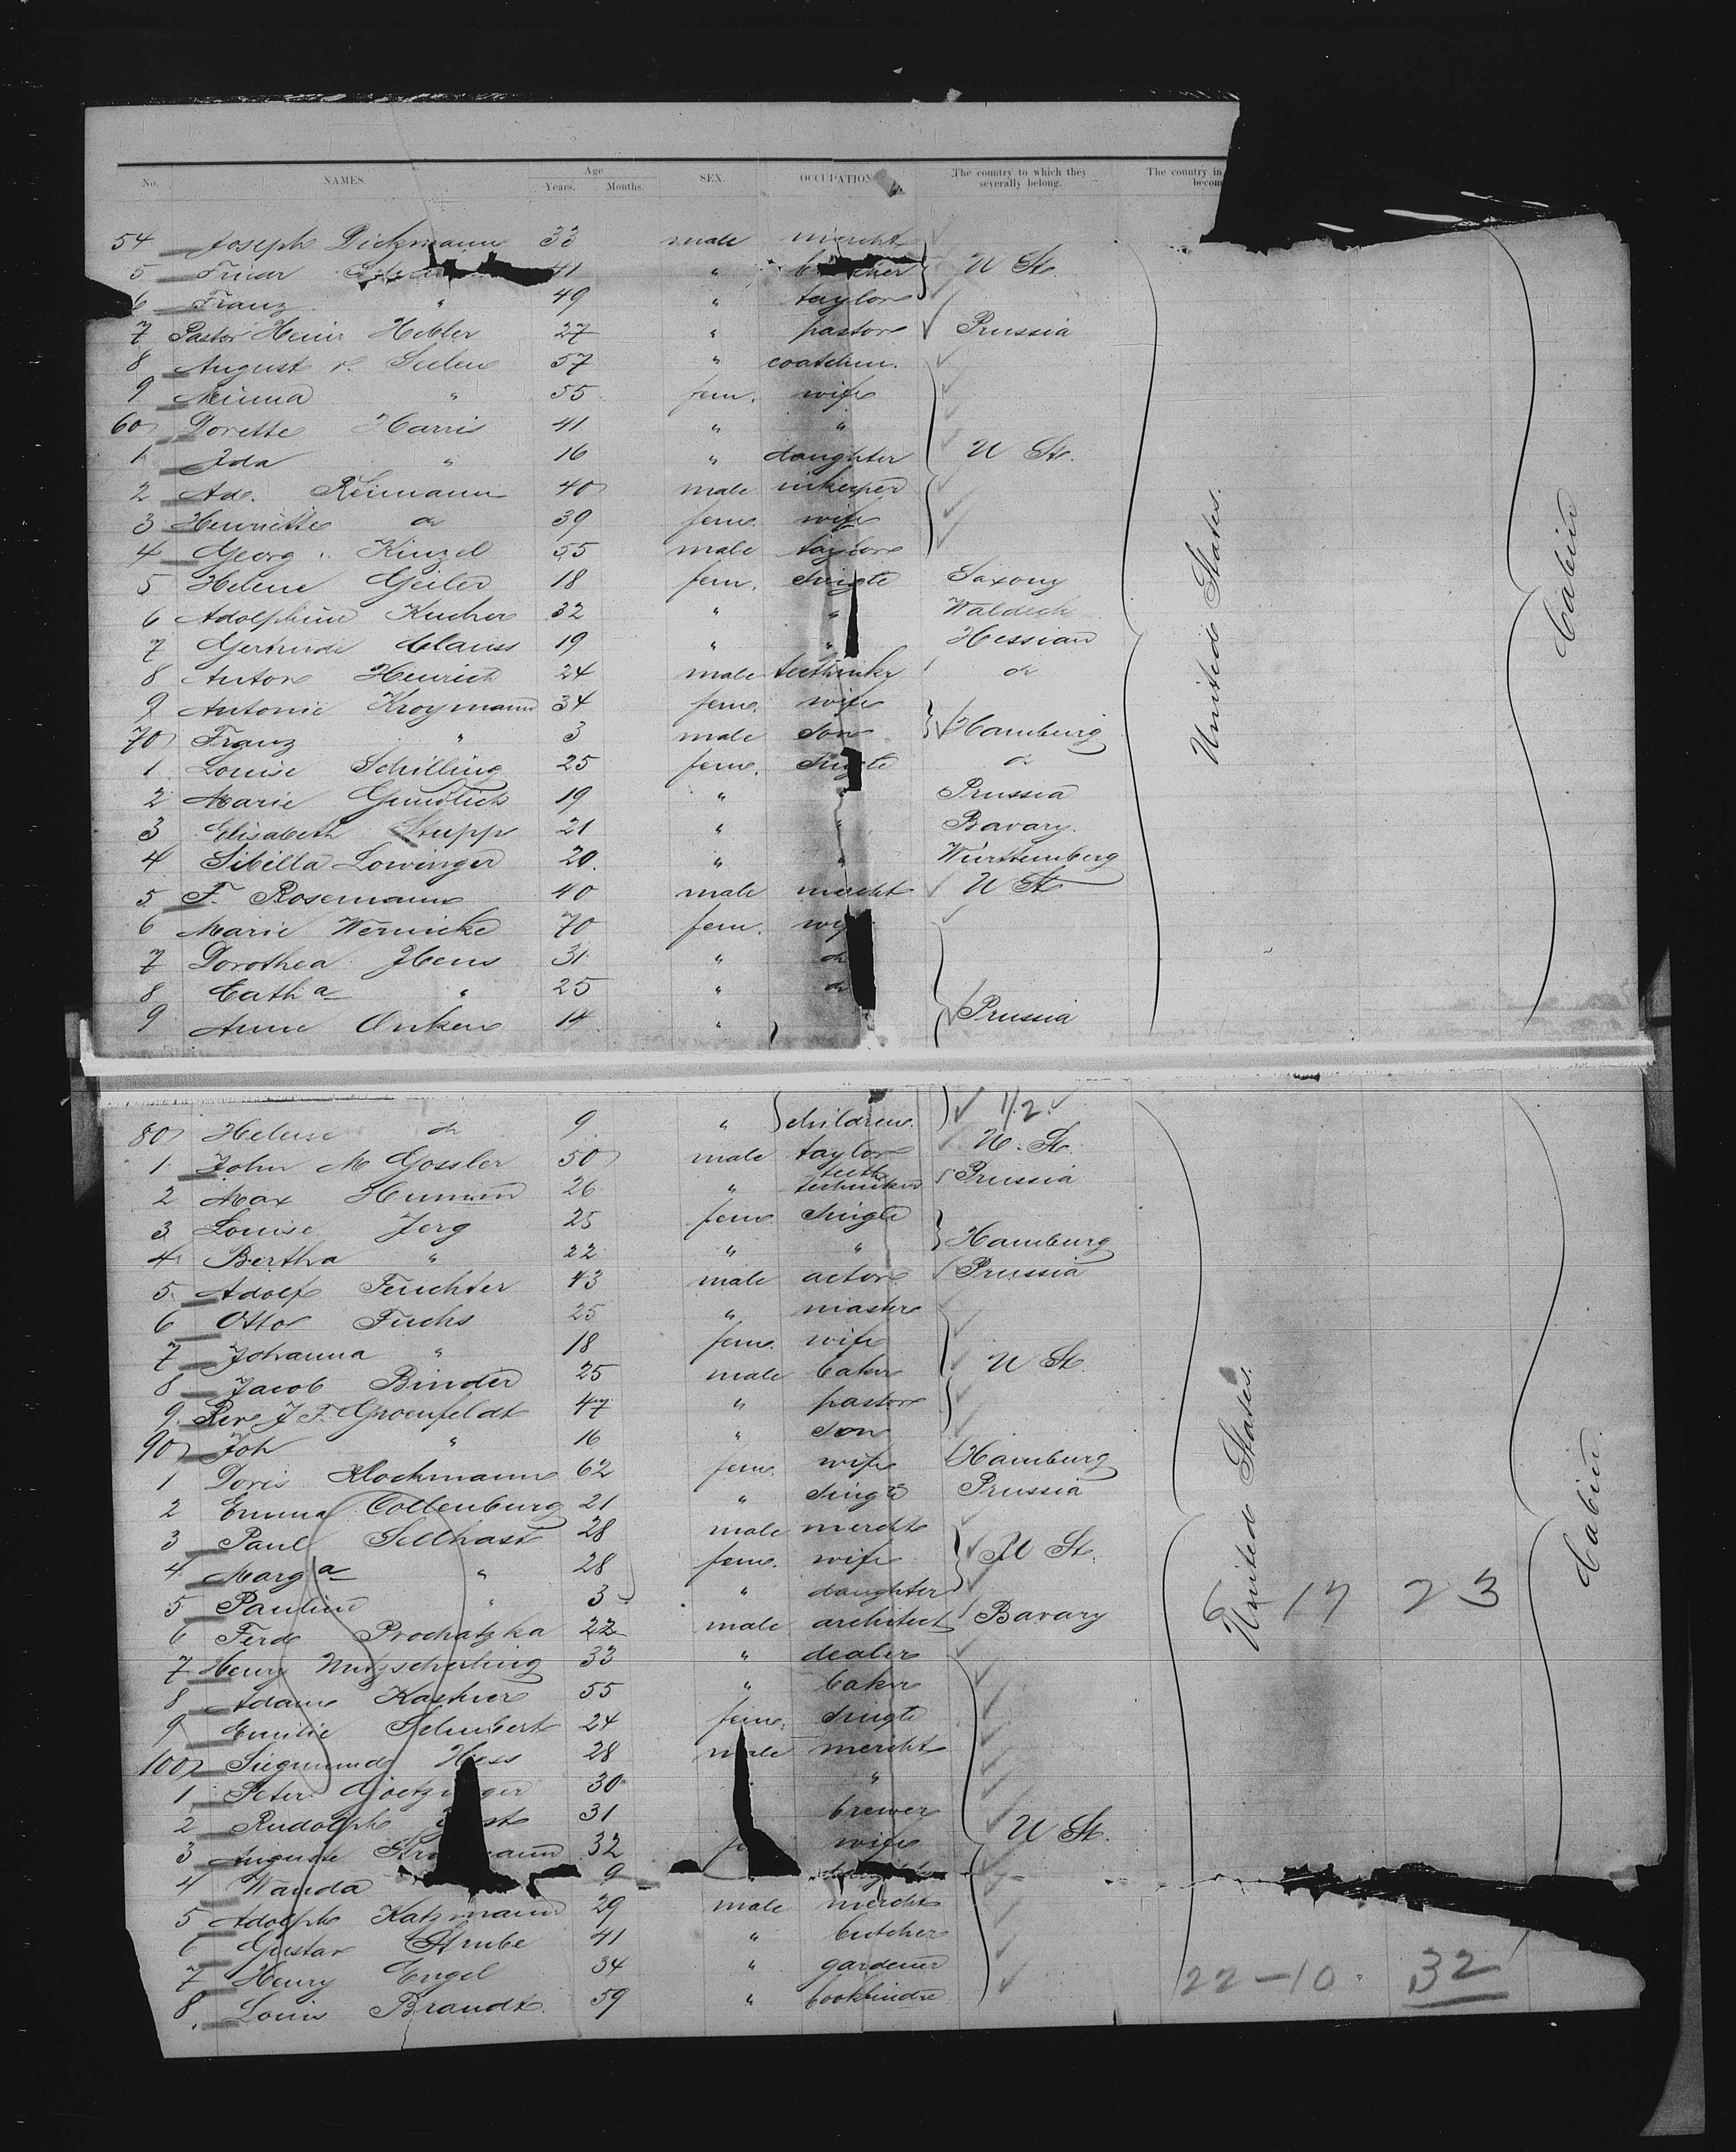 No. NAMES. Age Years. Months. SEX. OCCUPATION The country to which they severally belong. The country in becom
54 Joseph Dickmann 33 male mercht
5 41 " U St.
6 Franz " 49 " taylor
7 Pastor Heinr Hebler 27 " pastor Prussia
8 August v. Seelen 57 " coatchm.
9 Minna " 55 fem. wife
60 Dorette Harris 41 " "
1 Ida " 16 " daughter U St.
2 Ad. Reimann 40 male inkeeper
3 Henriette do 39 fem. wife
4 Georg Kinzel 55 male taylor
5 Helene Geiler 18 fem. single Saxony
6 Adolphine Kucher 32 " " Waldeck
7 Gertrude Clauss 19 " " Hessian
8 Anton Heinrich 24 male do
9 Antonie Kroymann 34 fem. wife
70 Franz " 3 male son Hamburg
1 Louise Schilling 25 fem. single do
2 Marie Gundlich 19 " " Prussia
3 Elisabeth Strupp 21 " " Bavary.
4 Sibilla Lowinger 20 " " Württemberg
5 F. Rosemann 40 male mercht U St
6 Marie Wernicke 70 fem.
7 Dorothea Ibens 31 " do
8 Cath a " 25 " do
9 Anne Onken 14 " Prussia
80 Helene do 9 " children 1/2
1 John M Gossler 50 male taylor U. St.
2 Max 26 " teeth techniker Prussia
3 Louise Jerg 25 fem. single
4 Bertha " 22 " " Hamburg
5 Adolf Feuchter 43 male actor Prussia
6 Otto Fuchs 25 " master
7 Johanna " 18 fem. wife
8 Jacob Binder 25 male baker U St.
9 Rev. J F. Groenfeldt 47 " pastor
90 Joh " 16 " son
1 Doris Klockmann 62 fem. wife Hamburg
2 Emma Collenburg 21 " single Prussia
3 Paul Sellhast 28 male mercht
4 Marg a " 28 fem. wife U St.
5 Pauline " 3 " daughter
6 Ferd Prochatzka 22 male architect Bavary
7 Henry Nutzscherling 33 " dealer
8 Adam Kastner 55 " baker
9 Emilie Schubert 24 fem. single
100 Siegmund Hess 28 male mercht
1 Peter 30 "
2 Rudolph 31 brewer U St.
3 Auguste 32 wife
4 Wanda 9
5 Adolph Katzmann 29 male mercht
6 Gustav Strube 41 " butcher
7 Henry Engel 34 " gardener
8 Louis Brandt. 59 " bookbinder
United States.
Cabin
United States.
Cabin.
6 17 23
22 – 10 . 32